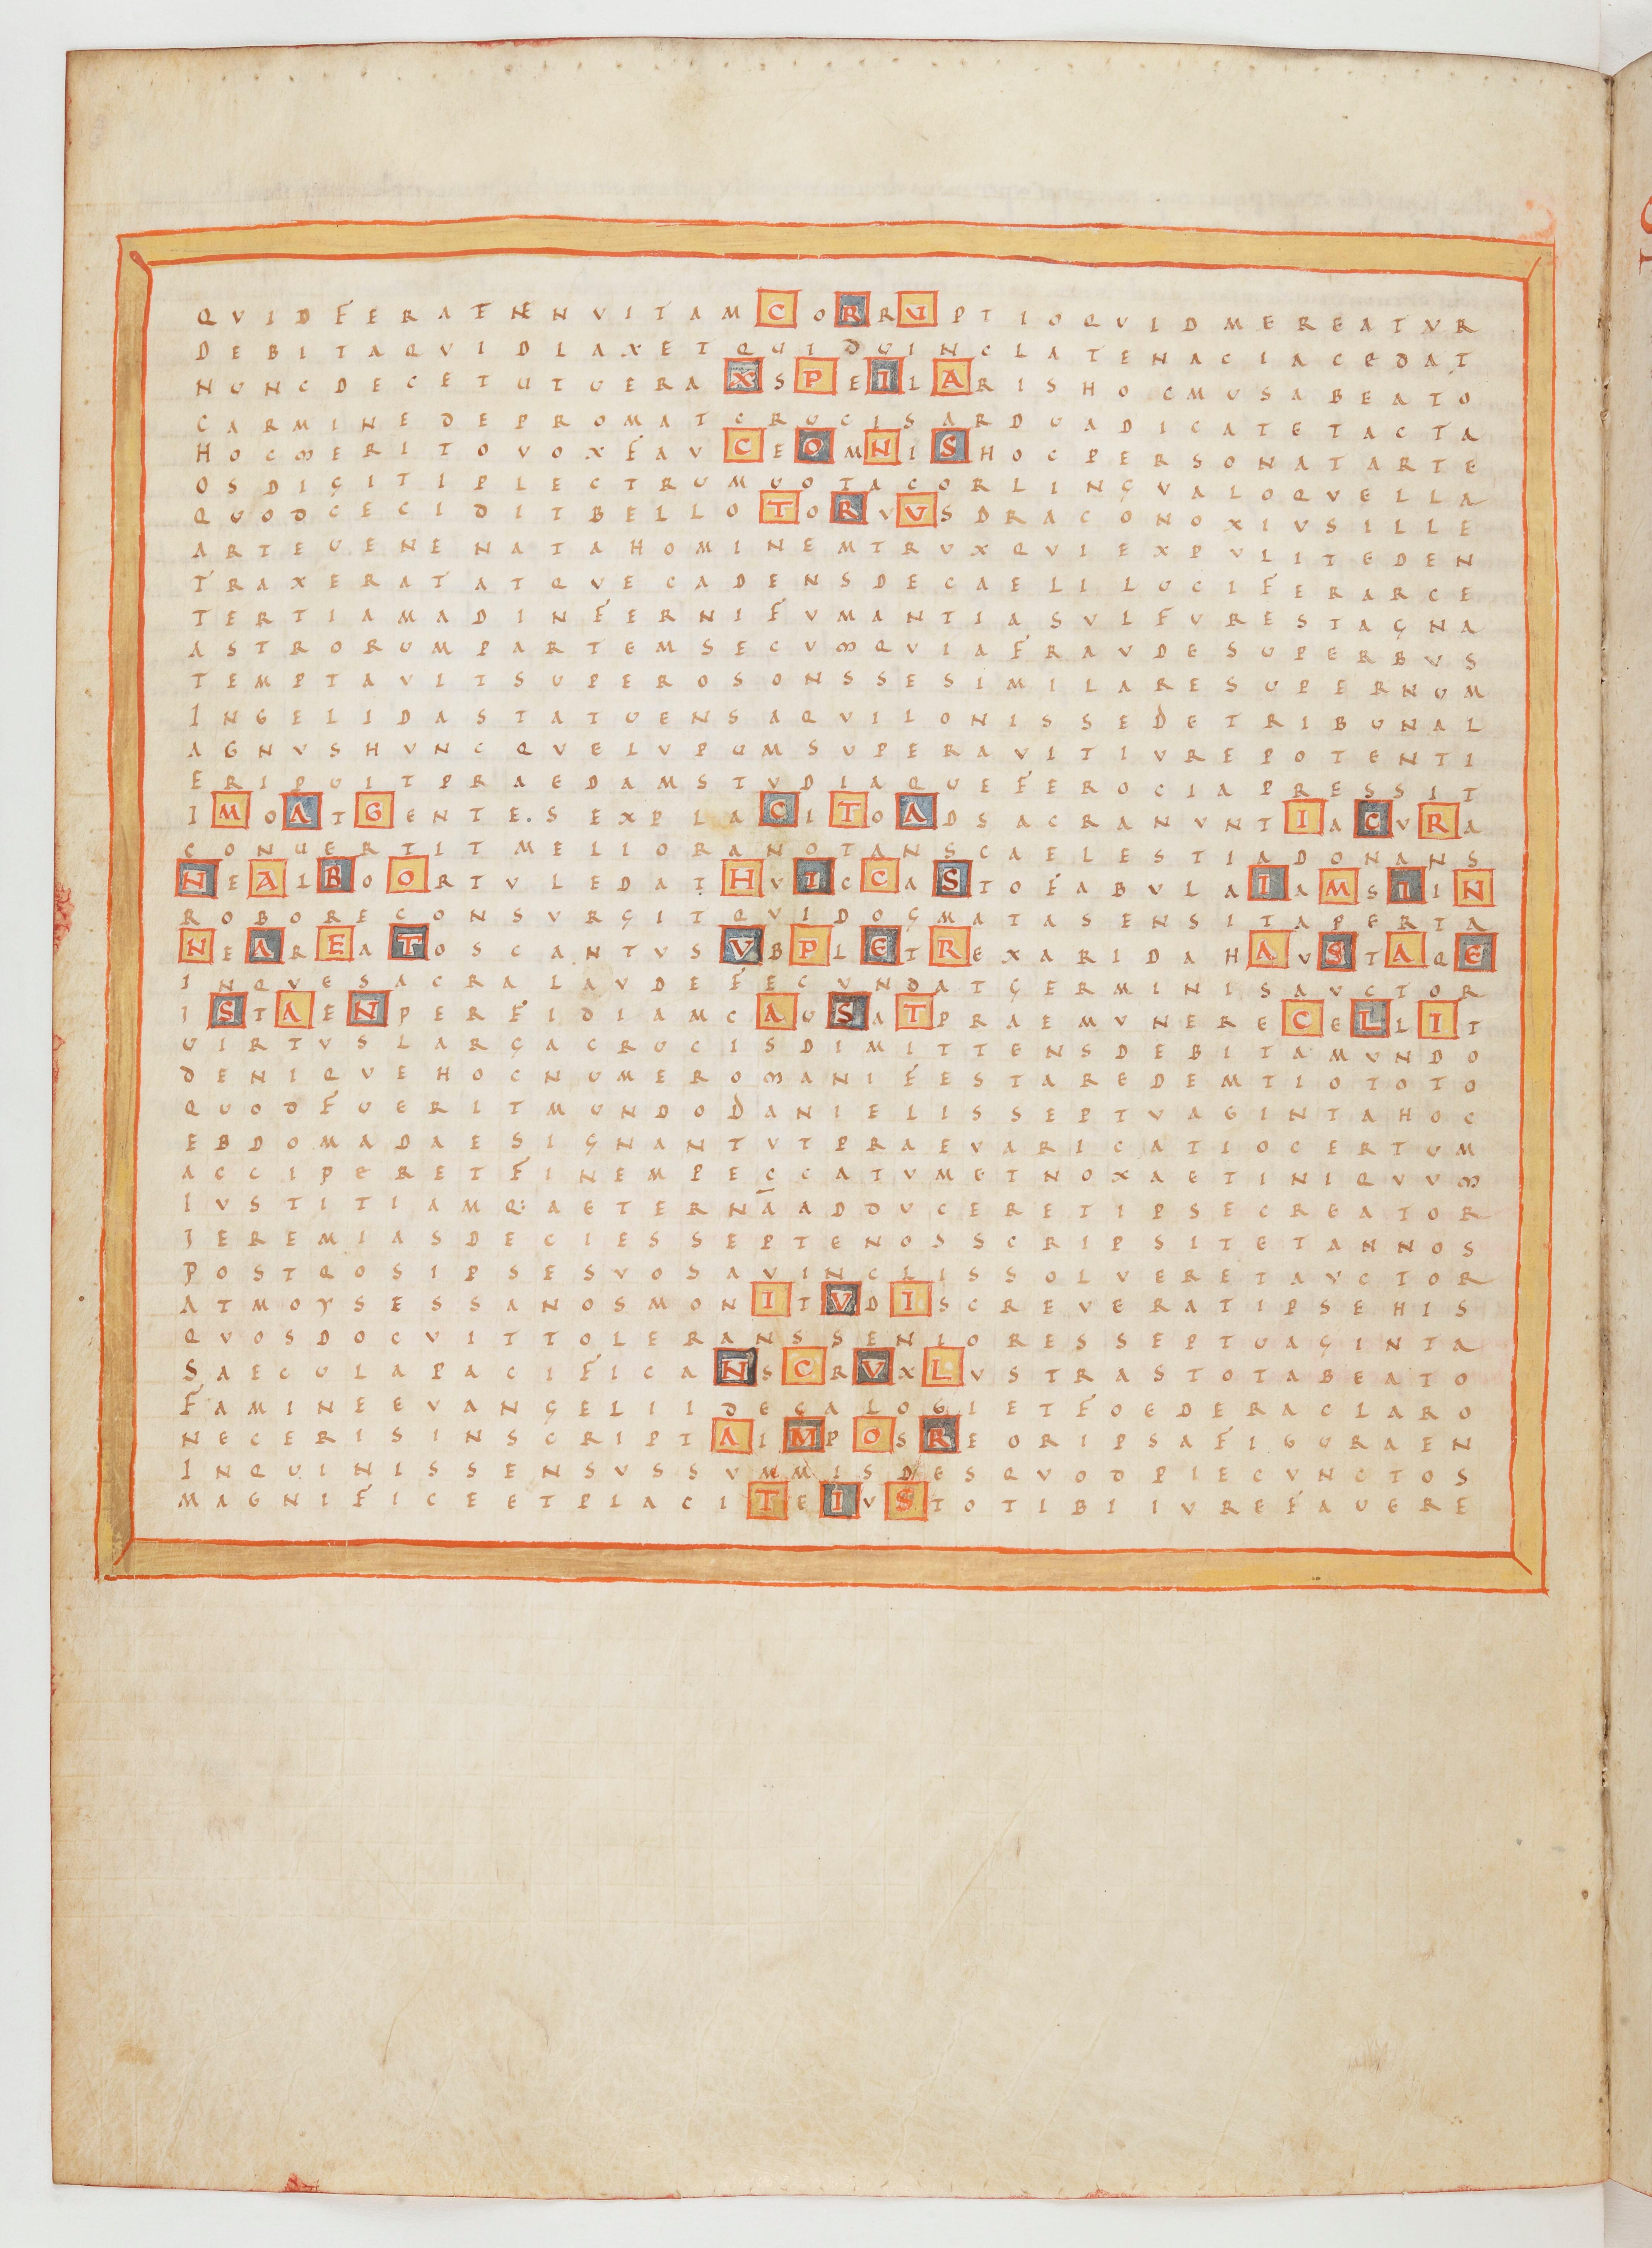 QVIDFERATENVITAMCORRUPTIOQVIDMEREATVR
DEBITAQVIDLAXETQUIDUINCLATENACIACEDAT
NUNCDECETUTUERAXSPEILARISHOCMUSABEATO
CARMINEDEPROMATCRUCISARDUADICATETACTA
HOCMERITOVOXFAVCEOMNISHOCPERSONATARTE
OSDIGITIPLECTRUMUOTACORLINGVALOQVELLA
QUODCECIDITBELLOTORVUSDRACONOXIVSILLE
ARTEUENENATAHOMINEMTRVXQVIEXPVLITEDEN
TRAXERATATQVECADENSDECAELILUCIFERARCE
TERTIAMADINFERNIFVMANTIASVLFVRESTAGNA
ASTRORUMPARTEMSECVMQVIAFRAVDESUPERBVS
TEMPTAVITSUPEROSONSSESIMILARESUPERNUM
INGELIDASTATUENSAQVILONISSEDETRIBUNAL
AGNVSHVNCQVELVPUMSUPERAVITIVREPOTENTI
ERIPUITPRAEDAMSTVDIAQUEFEROCIAPRESSIT
IMOATGENTE.SEXPLACITOADSACRANVNTIACVRA
CONUERTITMELIORANOTANSCAELESTIADONANS
NEALBOORTVLEDATHVICCASTOFABVLAIAMSIIN
ROBORECONSVRGITQVIDOGMATASENSITAPERTA
NEAREATOSCANTVSVBPLETREXARIDAHAVSTAQE
INQVESACRALAVDEFECVNDATGERMINISAVCTOR
ISTAENPERFIDIAMCAUSATPRAEMVNERECELLIT
UIRTVSLARGACRUCISDIMITTENSDEBITAMVNDO
DENIQVEHOCNUMEROMANIFESTAREDEMTIOTOTO
QUODFUERITMUNDODANIELISSEPTVAGINTAHOC
EBDOMADAESIGNANTVTPRAEVARICATIOCERTUM
ACCIPERETFINEMPECCATVMETNOXAETINIQVVM
IVSTITIAMQ:AETERNĀADDUCERETIPSECREATOR
IEREMIASDECIESSEPTENOSSCRIPSITETANNOS
POSTQOSIPSESVOSAVINCLISSOLVERETAVCTOR
ATMOYSESSANOSMONITVDISCREVERATIPSEHIS
QVOSDOCVITTOLERANSSENIORESSEPTUAGINTA
SAECULAPACIFICANSCRVXLVSTRASTOTABEATO
FAMINEEVANGELIIDECALOGIETFOEDERACLARO
NECERISINSCRIPTAIMPOSREORIPSAFIGURAEN
INQUINISSENSVSSVMMISDESQVODPIECVNCTOS
MAGNIFICEETPLACITEIVSTOTIBIIVREFAUERE